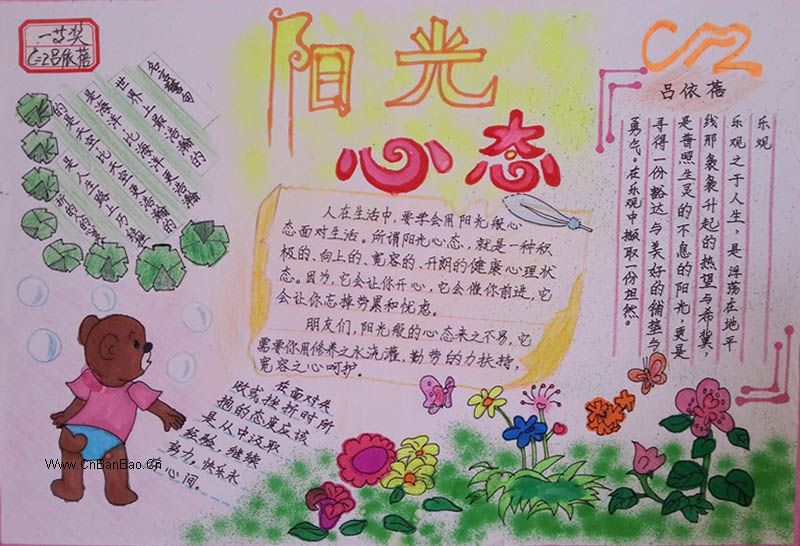 一等奖
C=2吕依蓓
阳光
心态
吕依蓓
名言警句
世界上最浩瀚的
是海洋，比海洋更浩瀚
的是天空，比天空更浩瀚的
是人生路上历经
人在生活中，要学会用阳光般心
态面对生活。所谓阳光心态，就是一种积
极的、向上的、宽容的、开朗的健康心理状
态。因为，它会让你开心，它会催你前进，它
会让你忘掉劳累和忧虑。
朋友们，阳光般的心态来之不易，它
需要你用修养之水浇灌，勤劳的力扶持，
宽容之心呵护。
乐观
乐观之于人生，是浮荡在地平
线那袅袅升起的热望与希冀，
是普照生灵的不息的阳光，更是
寻得一份豁达与美好的铺垫与
勇气。在乐观中撷取一份坦然。
在面对失
败或挫折时所
抱的态度应该
是从中汲取
经验，继续
努力，快乐永
在心间。
Www.CnBanBao.Cn